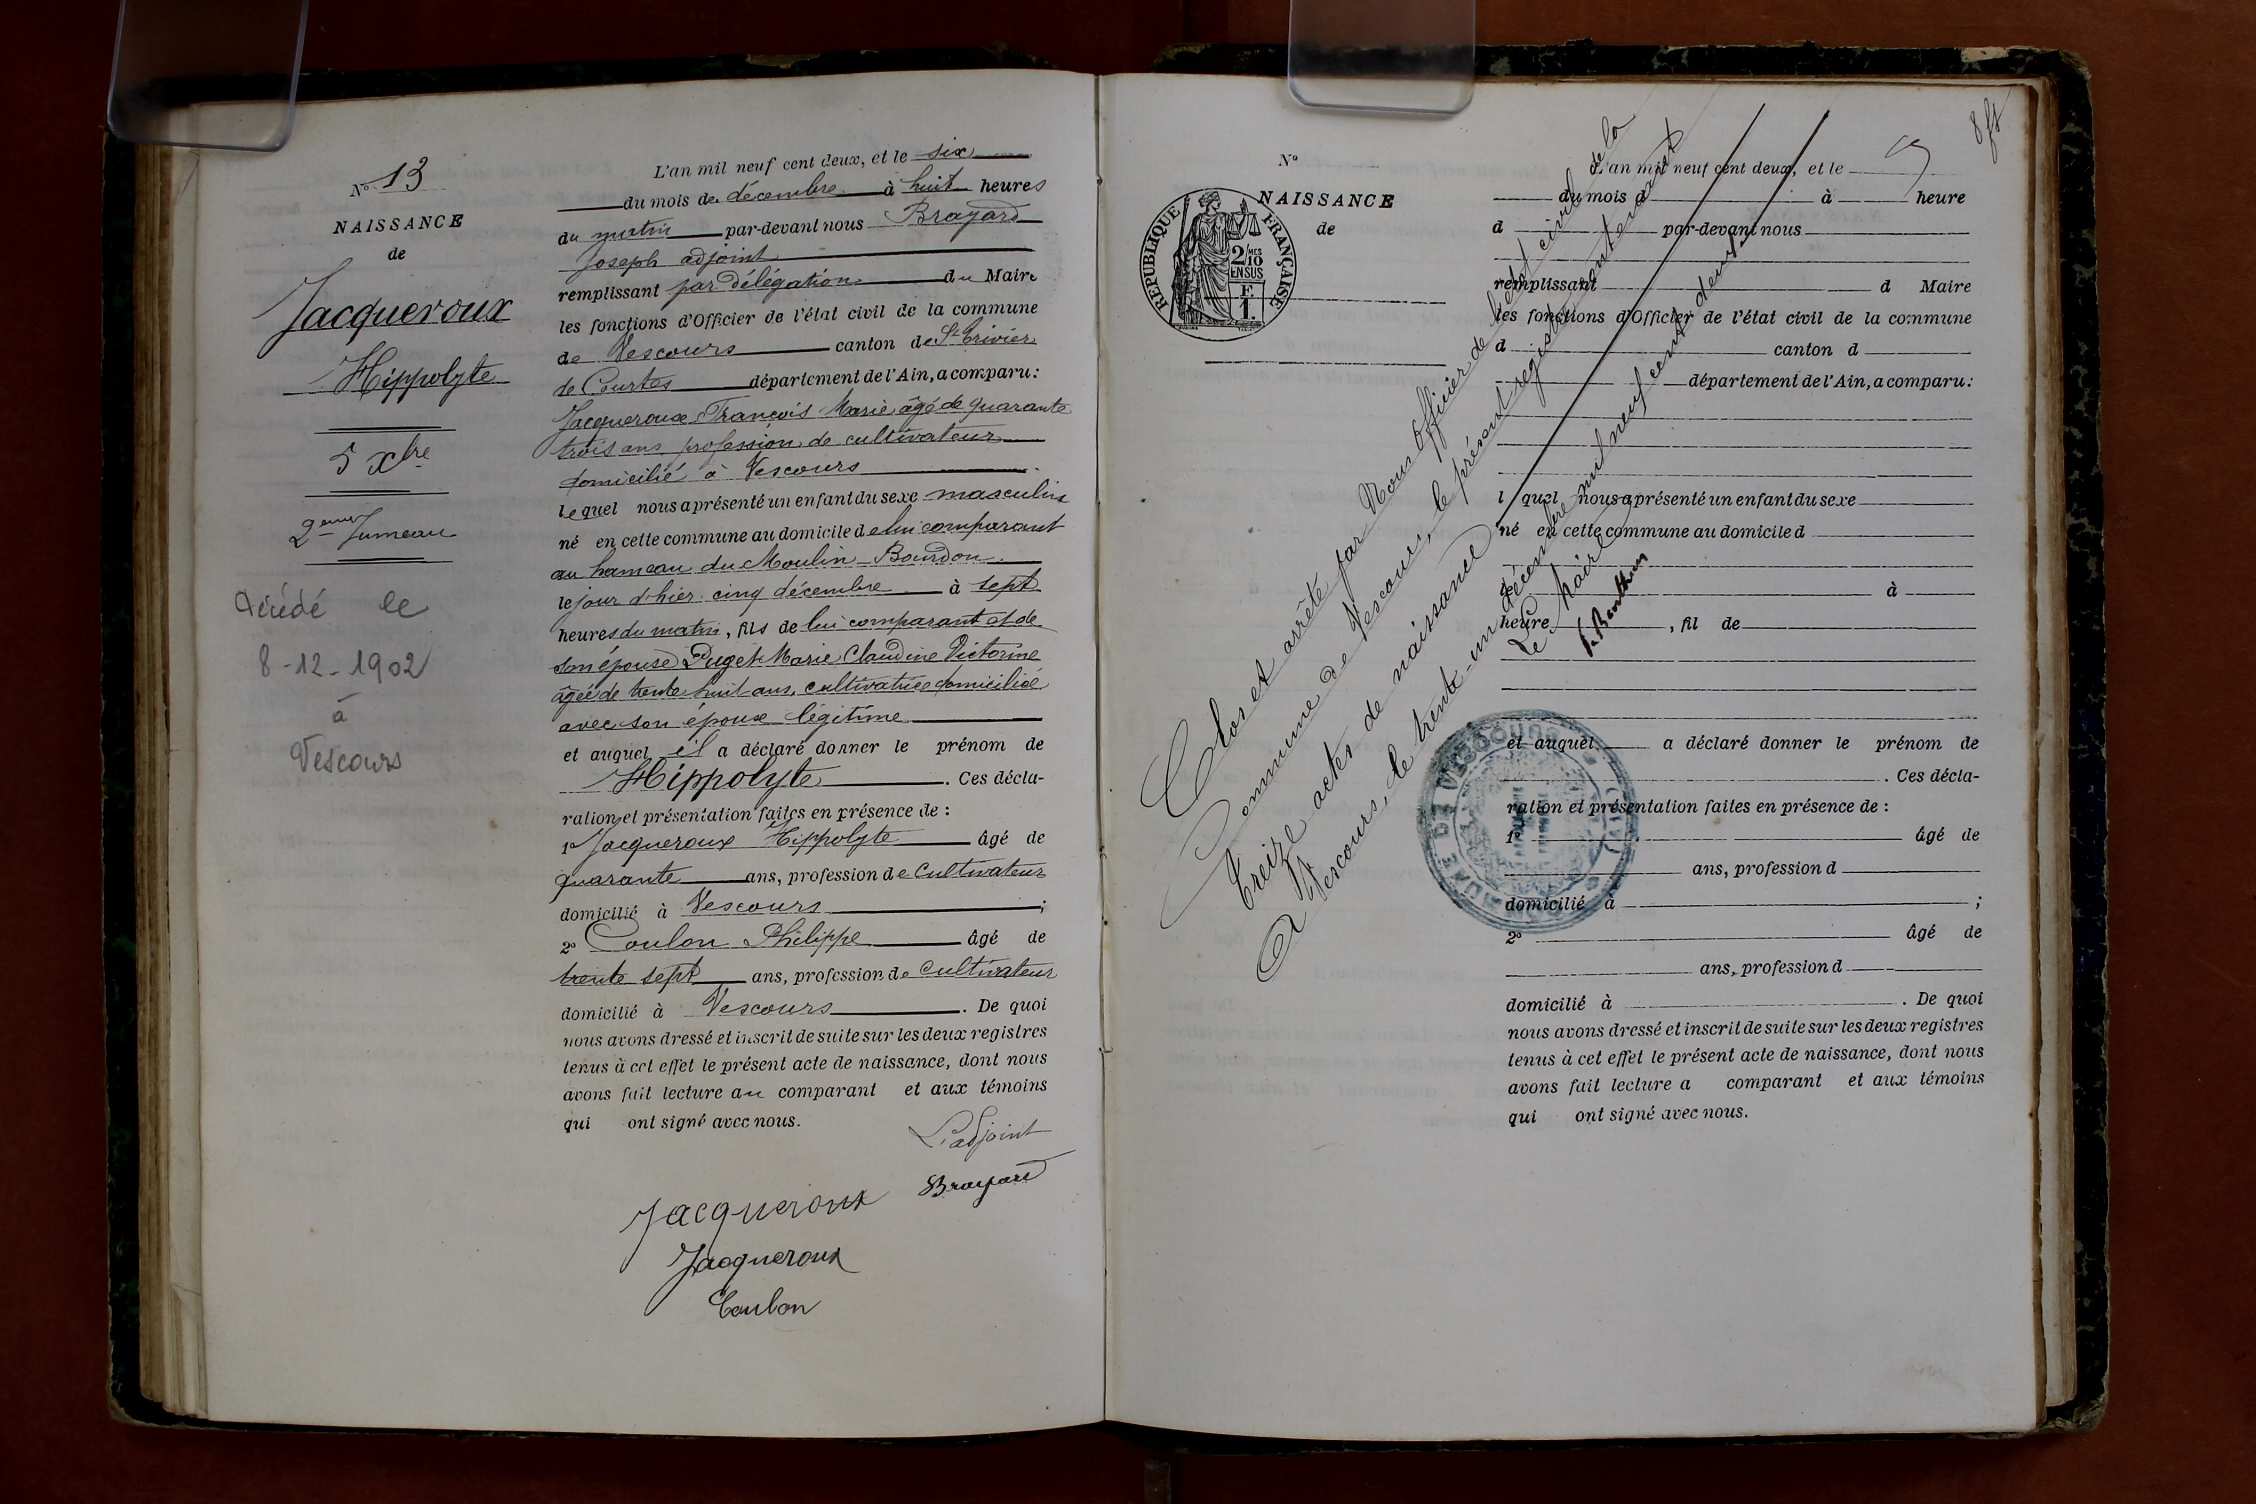 N° 13
NAISSANCE
de
Jacqueroux
Hippolyte
5 Xbre
2eme Jumeau
Décédé le
8-12-1902
à
Vescours
L'an mil neuf cent deux, et le six
du mois de décembre à huit heures
du matin par-devant nous Brayard
Joseph adjoint
remplissant par délégation du Maire
les fonctions d'Officier de l'état civil de la commune
de Vescours canton de St Trivier
de Courtes département de l'Ain, a comparu:
Jacqueroux François Marie âgé de quarante
trois ans profession de cultivateur
domicilié à Vescours
lequel nous a présenté un enfant du sexe masculin
né en cette commune au domicile de lui comparant
au hameau du Moulin Bourdon
le jour d'hier cinq décembre à sept
heures du matin, fils de lui comparant et de
son épouse Puget Marie Claudine Victorine
âgée de trente huit ans, cultivatrice domiciliée
avec son époux légitime
et auquel il a déclaré donner le prénom de
Hippolyte. Ces décla-
ration et présentation faites en présence de :
1° Jacqueroux Hippolyte âgé de
quarante ans, profession de cultivateur
domicilié à Vescours ;
2° Coulon Philippe âgé de
trente sept ans, profession de cultivateur
domicilié à Vescours. De quoi
nous avons dressé et inscrit de suite sur les deux registres
tenus à cet effet le présent acte de naissance, dont nous
avons fait lecture au comparant et aux témoins
qui ont signé avec nous.
L'adjoint
Brayard
Jacqueroux
Jacqueroux
Coulon
N°
NAISSANCE
de
REPUBLIQUE FRANÇAISE
2/10 MES
EN SUS
F
1.
L'an mil neuf cent deux, et le
du mois d à heure
d par-devant nous
remplissant d Maire
les fonctions d'Officier de l'état civil de la commune
d canton d
département de l'Ain, a comparu:
l quel nous a présenté un enfant du sexe
né en cette commune au domicile d
le à
heure , fil de
et auquel a déclaré donner le prénom de
. Ces décla-
ration et présentation faites en présence de :
1° âgé de
ans, profession d
domicilié à ;
2° âgé de
ans, profession d
domicilié à . De quoi
nous avons dressé et inscrit de suite sur les deux registres
tenus à cet effet le présent acte de naissance, dont nous
avons fait lecture a comparant et aux témoins
qui ont signé avec nous.
Clos et arrêté par Nous Officier de l'état civil de la
Commune de Vescours, le présent registre contenant
treize actes de naissance
A Vescours, le trente-un décembre mil neuf cent deux
Le Maire
COMMUNE DE VESCOURS (AIN)